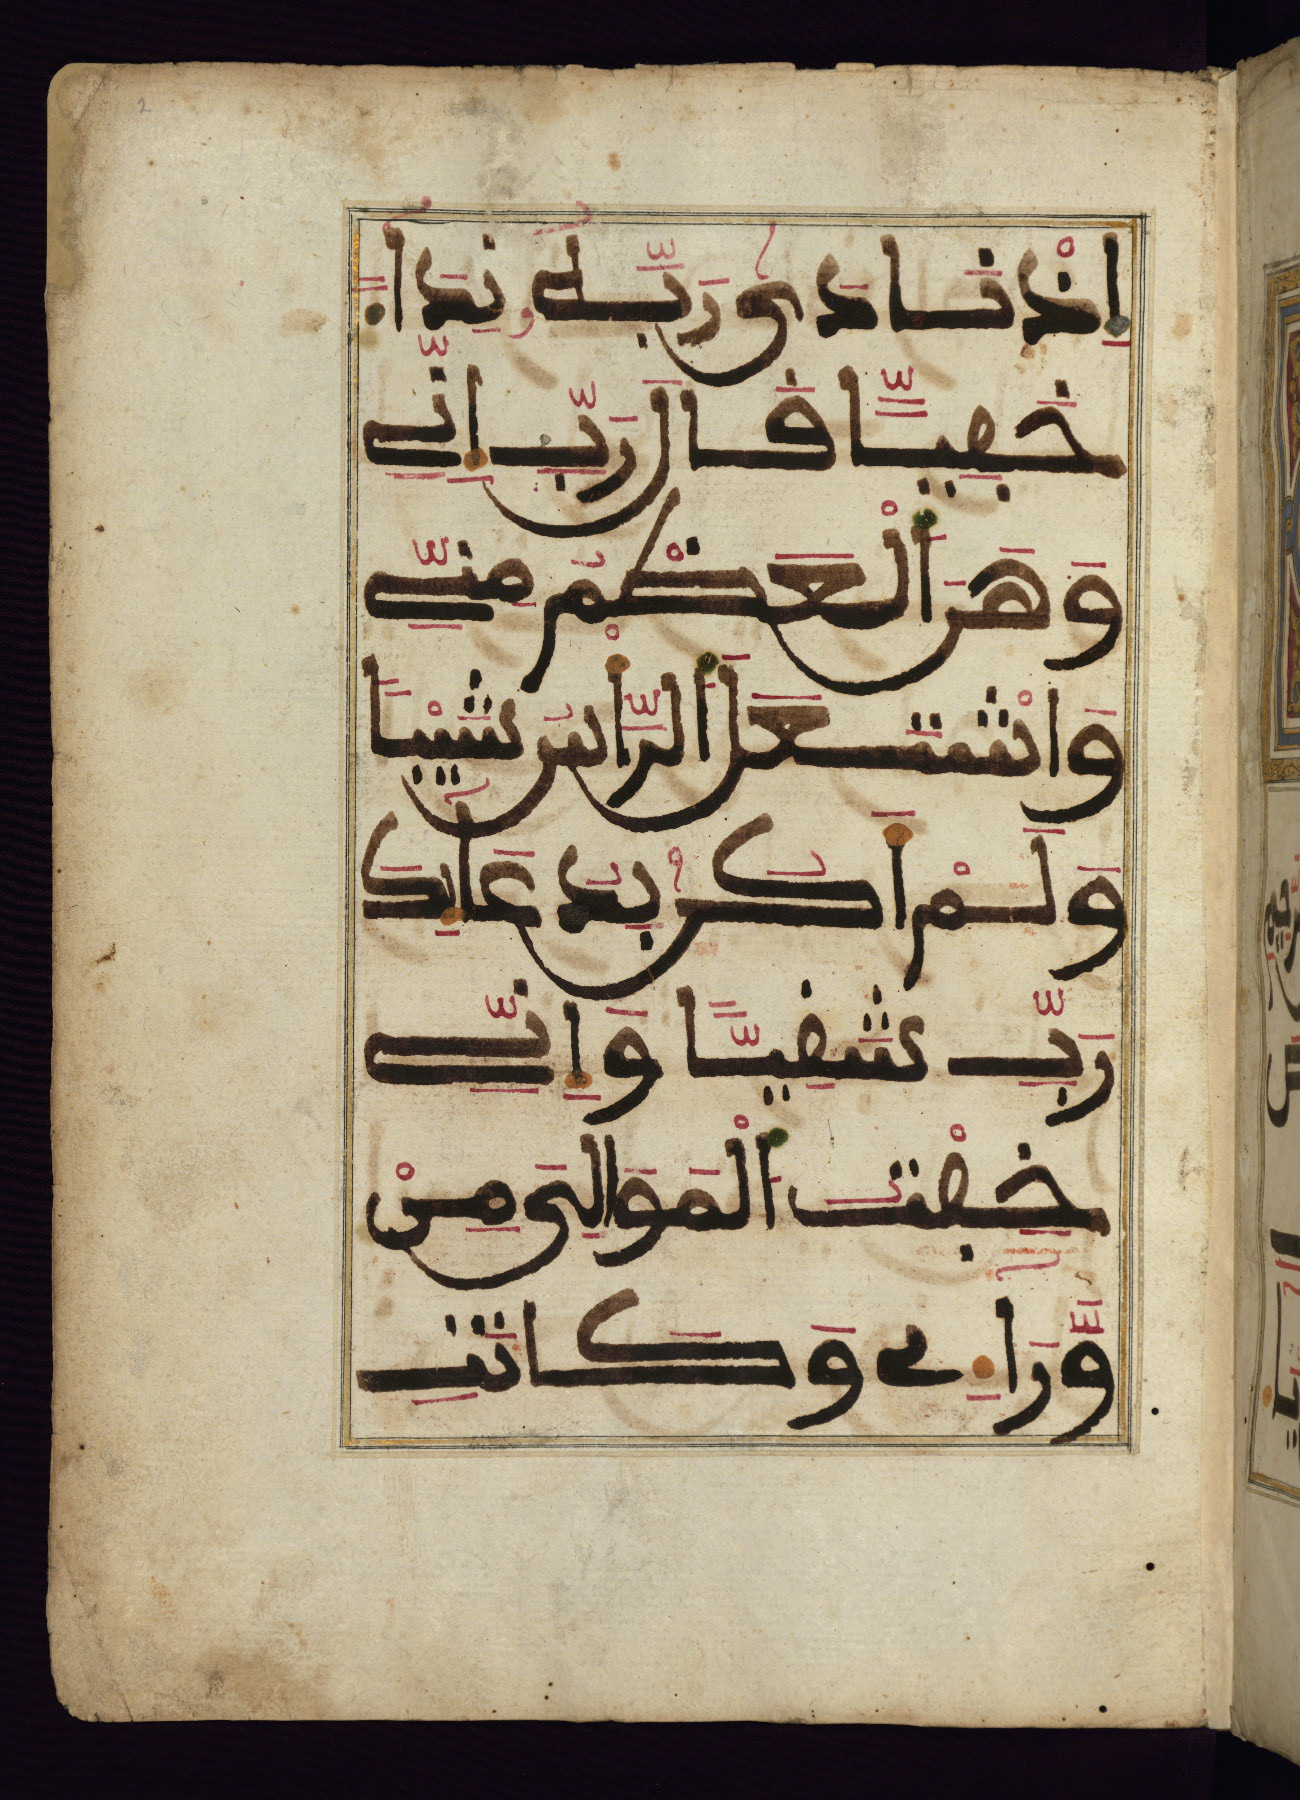 2
اِذْ نَادَىٰ رَبَّهُۥ نِدَآءً
خَفِيًّا قَالَ رَبِّ إِنِّے
وَهَنَ اَ۬لْعَظْمُ مِنِّے
وَاشْتَعَلَ اَ۬لرَّأْسُ شَيْباً
وَلَمْ أَكُنۢ بِدُعَآئِكَ
رَبِّ شَقِيّاً وَإِنِّے
خِفْتُ اَ۬لْمَوَٰلِيَ مِنْ
وَّرَآءِے وَكَانَتِ